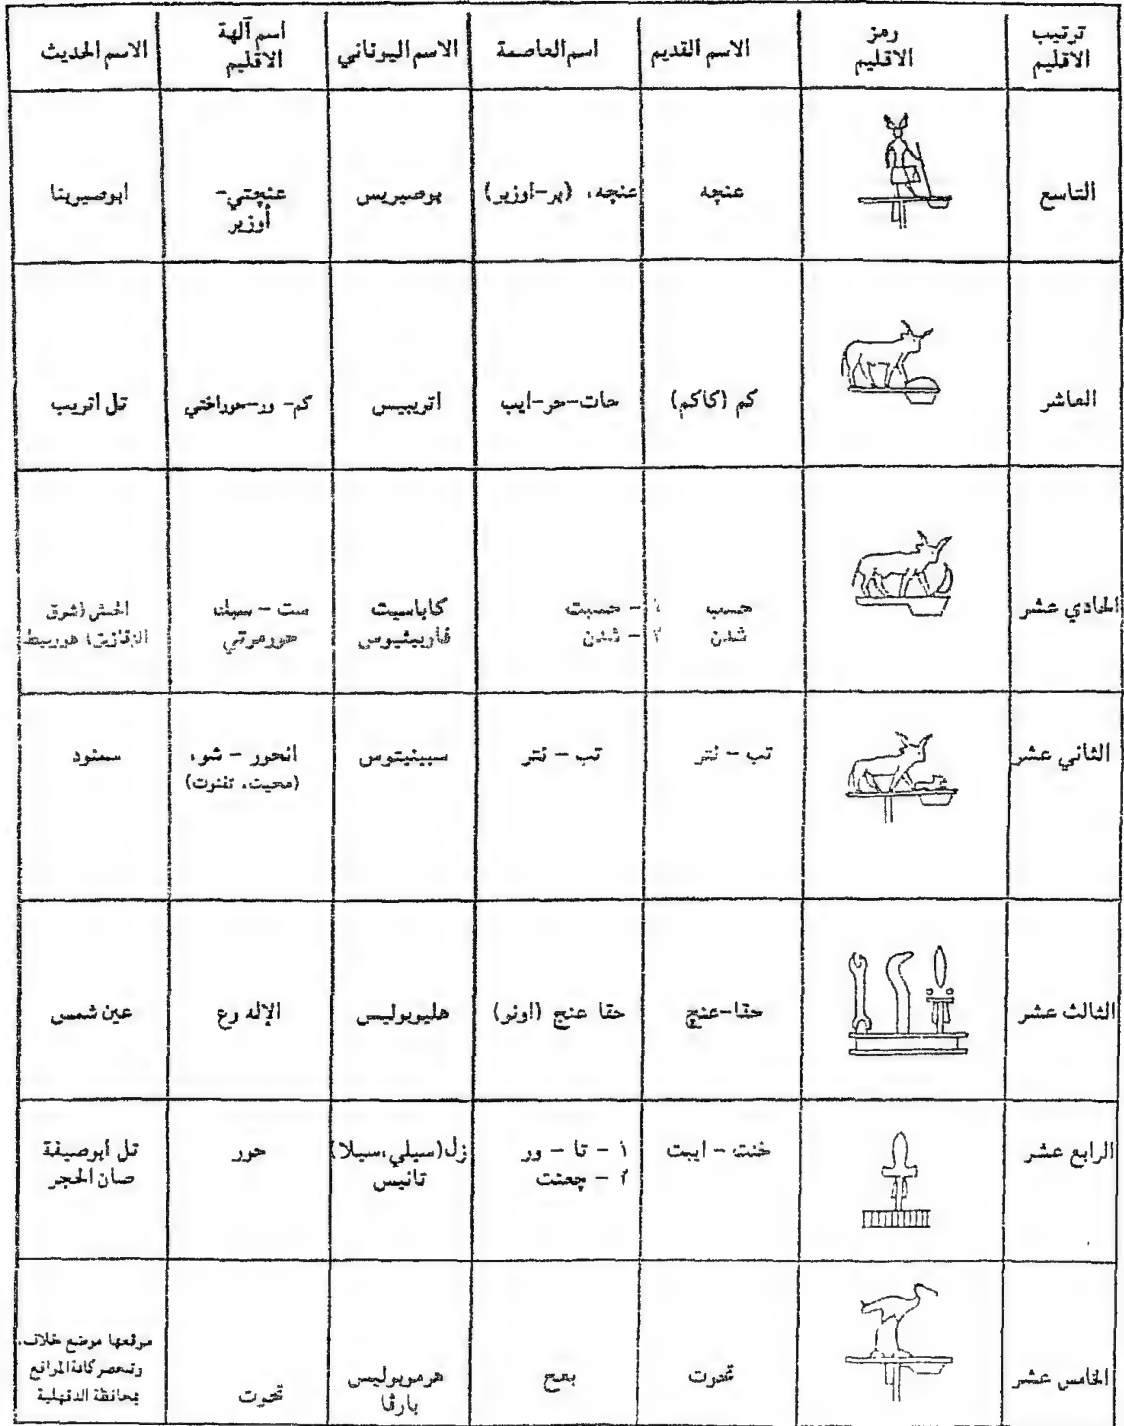 ترتيب الاقليم | رمز الاقليم | الاسم القديم | اسم العاصمة | الاسم اليوناني | اسم آلهة الاقليم | الاسم الحديث
التاسع | عنچه | عنچه، (پر-اوزير) | بوصيريس | عنچتي-أوزير | ابوصيربنا
العاشر | كم (كاكم) | حات-حر-ايب | اتريبيس | كم- ور-حوراختي | تل اتريب
الحادي عشر | حسب | ١ - حسبت | كاباسيت | ست - سبك | الحبش (شرق
شدن | ٢ - شدن | فاربيثيوس | حورمرتي | الزقازيق) هوربيط
الثاني عشر | تب - نتر | تب - نتر | سبينيتوس | انحور - شو، | سمنود
(محيت، تفنوت)
الثالث عشر | حقا-عنچ | حقا عنچ (اونو) | هليوبوليس | الإله رع | عين شمس
الرابع عشر | خنت - ايبت | ١ - تا - ور | زل(سيلي،سيلا) | حور | تل ابوصيفة
٢ - چعنت | تانيس | صان الحجر
الخامس عشر | تحوت | بعح | هرموبوليس بارڤا | تحوت | موقعها موضع خلاف،
وتنحصر كافة المواقع
بمحافظة الدقهلية